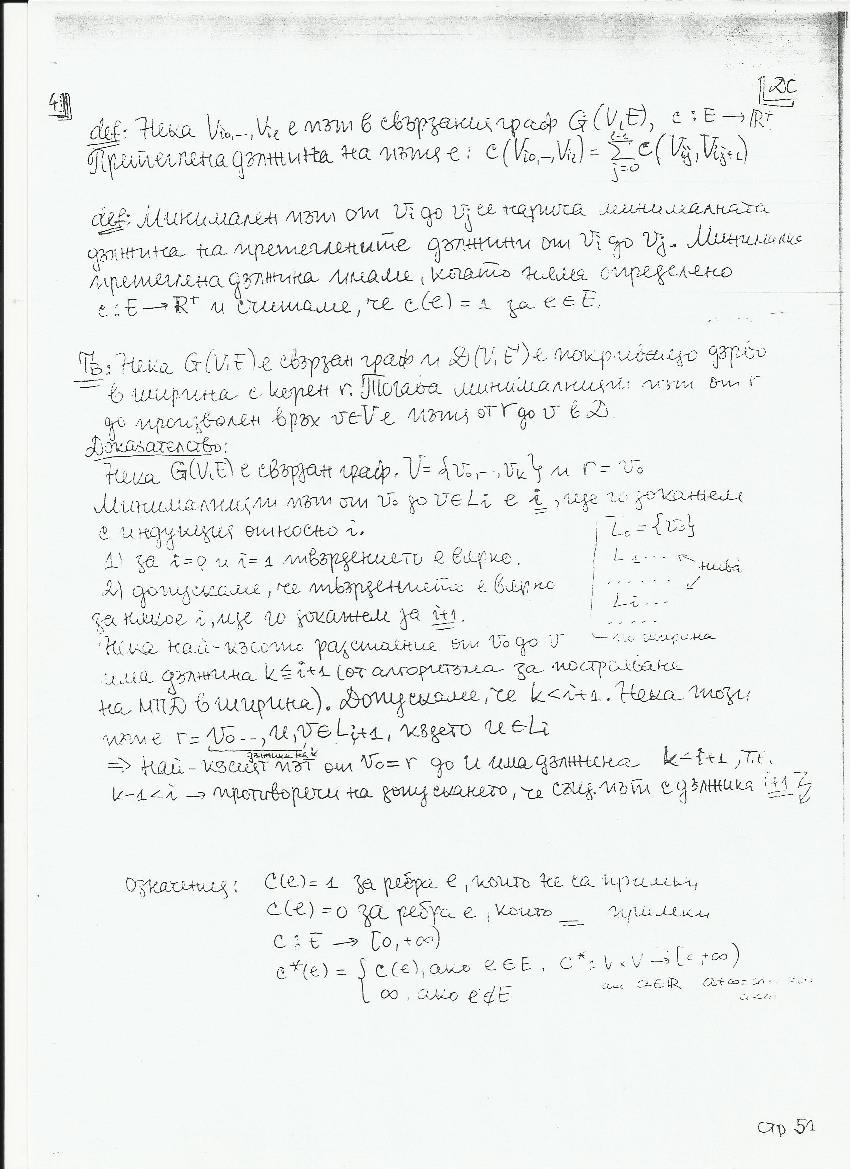 ДС
def: Нека Vi0,..,Vil е път в свързания граф G(V,E), c : E → R⁺
Претеглена дължина на пътя е: c(Vi0,..,Vil) = ∑_{j=0}^{l-1} c(Vij, Vij+1)
def: Минимален път от Vi до Vj се нарича минималната
дължина на претеглените дължини от Vi до Vj. Минимална
претеглена дължина имаме, когато няма определено
c : E → R⁺ и считаме, че c(e) = 1 за e ∈ E.
Тв: Нека G(V,E) е свързан граф и D(V,E') е покриващо дърво
в ширина с корен r. Тогава минималният път от r
до произволен връх v∈V е пътя от r до v в D.
Доказателство:
Нека G(V,E) е свързан граф. V = {v0,..,vk} и r = v0
Минималният път от v0 до v∈Li е i, ще го докажем
с индукция относно i.
L0 = {v0}
1) за i=0 и i=1 твърдението е вярко.
L1 ... нива
2) допускаме, че твърдението е вярко
Li ...
за някое i, ще го докажем за i+1.
по ширина
Нека най-късото разстояние от v0 до v
има дължина k ≤ i+1 (от алгоритъма за построяване
на МПД в ширина). Допускаме, че k < i+1. Нека този
път е r = v0 .., u, v ∈ Li+1, където u ∈ Li
дължина на k
⇒ Най-късият път от v0 = r до u има дължина k-1
k-1 < i → противоречи на допускането, че с дължина i+1
Означения: c(e) = 1 за ребра e, които не са примки
c(e) = 0 за ребра e, които = примки
c : E → [0,+∞)
c*(e) = { c(e), ако e ∈ E, C* : V × V → [0,+∞)
∞, ако e ∉ E
стр 51